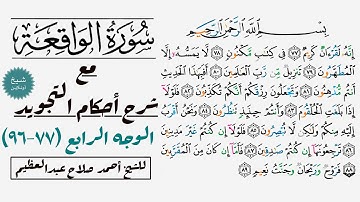 بِسْمِ اللَّهِ الرَّحْمَٰنِ الرَّحِيمِ
إِنَّهُ لَقُرْءَانٌ كَرِيمٌ ٧٧ فِي كِتَٰبٍ مَّكْنُونٍ ٧٨ لَّا يَمَسُّهُ إِلَّا
الْمُطَهَّرُونَ ٧٩ تَنزِيلٌ مِّن رَّبِّ الْعَٰلَمِينَ ٨٠ أَفَبِهَٰذَا الْحَدِيثِ
أَنتُم مُّدْهِنُونَ ٨١ وَتَجْعَلُونَ رِزْقَكُمْ أَنَّكُمْ تُكَذِّبُونَ ٨٢ فَلَوْلَا
إِذَا بَلَغَتِ الْحُلْقُومَ ٨٣ وَأَنتُمْ حِينَئِذٍ تَنظُرُونَ ٨٤ وَنَحْنُ أَقْرَبُ
إِلَيْهِ مِنكُمْ وَلَٰكِن لَّا تُبْصِرُونَ ٨٥ فَلَوْلَا إِن كُنتُمْ غَيْرَ مَدِينِينَ
٨٦ تَرْجِعُونَهَا إِن كُنتُمْ صَٰدِقِينَ ٨٧ فَأَمَّا إِن كَانَ مِنَ الْمُقَرَّبِينَ
٨٨ فَرَوْحٌ وَرَيْحَانٌ وَجَنَّتُ نَعِيمٍ ٨٩
سورة الواقعة
مع
شرح أحكام التجويد
الوجه الرابع (٧٧-٩٦)
للشيخ/ أحمد صلاح عبدالعظيم